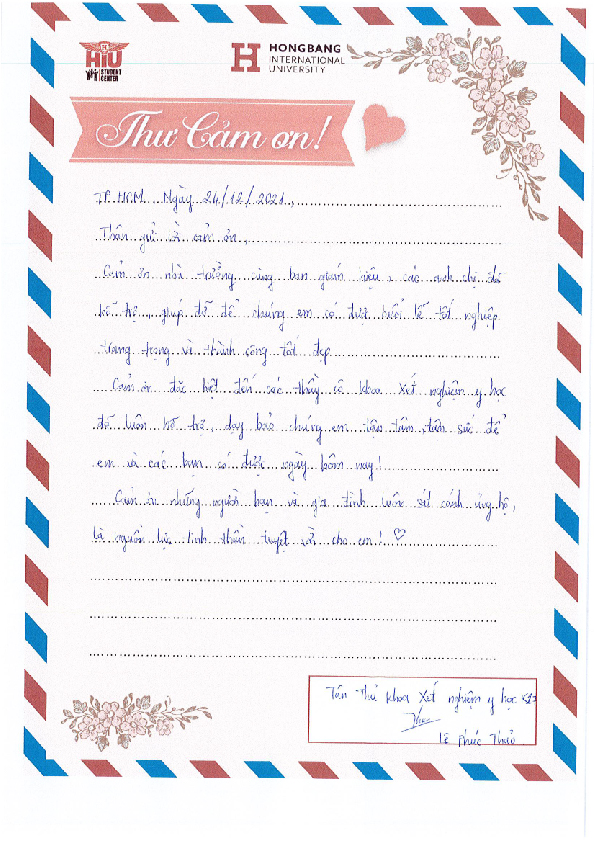 HIU
STUDENT
CENTER
HONGBANG
INTERNATIONAL
UNIVERSITY
Thư Cảm ơn!
TP. HCM. Ngày 24/12/2021,
Thân gửi & cảm ơn,
Cảm ơn nhà trường cùng ban giám hiệu, các anh chị đã
hỗ trợ, giúp đỡ để chúng em có được buổi lễ tốt nghiệp
trang trọng và thành công tốt đẹp
Cảm ơn đặc biệt đến các thầy cô khoa Xét nghiệm y học
đã luôn hỗ trợ, dạy bảo chúng em tận tâm, tận sức để
em và các bạn có được ngày hôm nay!
Cảm ơn những người bạn và gia đình luôn sát cánh ủng hộ,
là nguồn lực tinh thần tuyệt vời cho em! ♡
Tân Thủ khoa Xét nghiệm y học
Lê Phúc Thảo